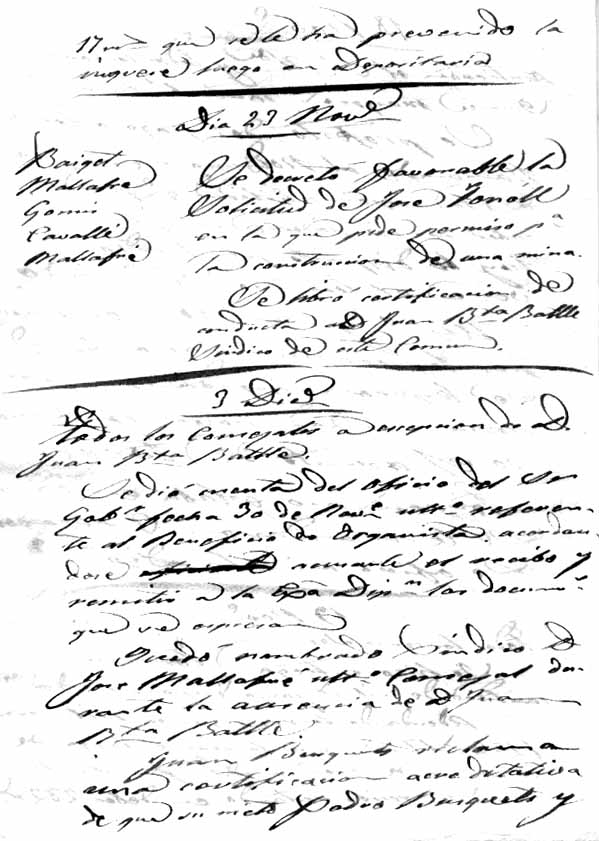 17 mrs que se le ha prevenido la
luego en Depositaria
Dia 23 Nove
Baiget
Mallafré
Gomis
Cavallé
Mallafré
Se decretó favorable la
Solicitud de Jose Tonóll
en la que pide permiso pa
la construccion de una mina.
Se libró certificacion de
conducta a D Juan Bta Batlle
Sindico de este Comun.
3 Dice
Todos los Consejales a escepcion de D.
Juan Bta Batlle.
Se dió cuenta del oficio del Sr
Gobr fecha 30 de Nove ulto referen-
te al Beneficio de Organista, acordan-
dose acusarle el recibo y
remitir a la Exa Dipn los documtos
que se espresan
Quedó nombrado Síndico D
Jose Mallafré ulto Consejal du-
rante la ausencia de D Juan
Bta Batlle.
Juan Busquets reclama
una certificacion acreditativa
de que su nieto Pedro Busquets y